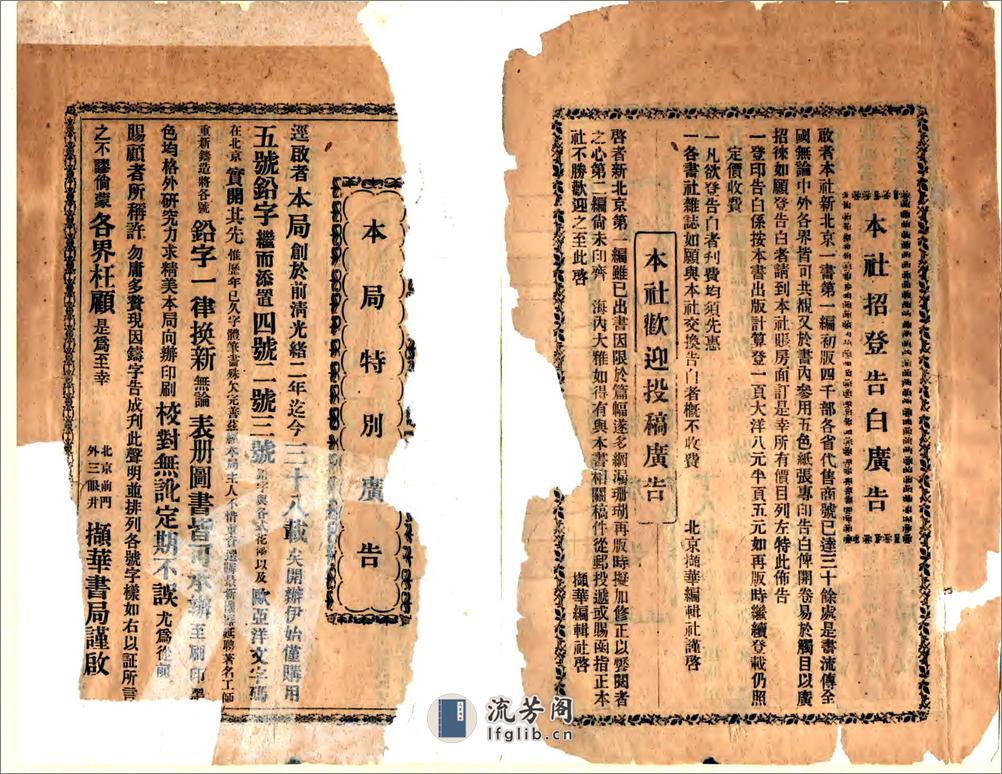 本社招登告白廣告
敬者本社新北京一書第一編初版四千部各省代售商號已達三十餘處是書流傳全
國無論中外各界皆可共覩又於書內參用五色紙張專印告白俾開卷易於觸目以廣
招徠如願登告白者請到本社賬房面訂是幸所有價目列左特此佈告
一登印告白係按本書出版計算登一頁大洋八元半頁五元如再版時繼續登載仍照
定價收費
一凡欲登告白者刊費均須先惠
一各書社雜誌如願與本社交換告白者概不收費
北京擷華編輯社謹啓
本社歡迎投稿廣告
啓者新北京第一編雖已出書因限於篇幅遂多網漏珊瑚再版時擬加修正以饜閱者
之心第二編尙未印齊 海內大雅如得有與本書相關稿件從郵投遞或賜函指正本
社不勝歡迎之至此啓
擷華編輯社啓
本局特別廣告
逕啟者本局創於前淸光緒二年迄今三十八載矣開辦伊始僅購用
五號鉛字繼而添置四號二號三號鉛字與各式花邊以及歐亞洋文字碼
在北京實開其先惟歷年已久字體筆畫殊欠完善茲經本局主人不惜重資選購最新謹聘著名工師
重新鑄造將各號鉛字一律換新無論表册圖書皆可承辦至刷印墨
色均格外硏究力求精美本局向辦印刷校對無訛定期不誤尤爲從前
賜顧者所稱許勿庸多贅現因鑄字告成刋此聲明並排列各號字樣如右以証所言
之不謬倘蒙各界枉顧是爲至幸
北京前門外三眼井
擷華書局謹啟
流芳阁
lfglib.cn